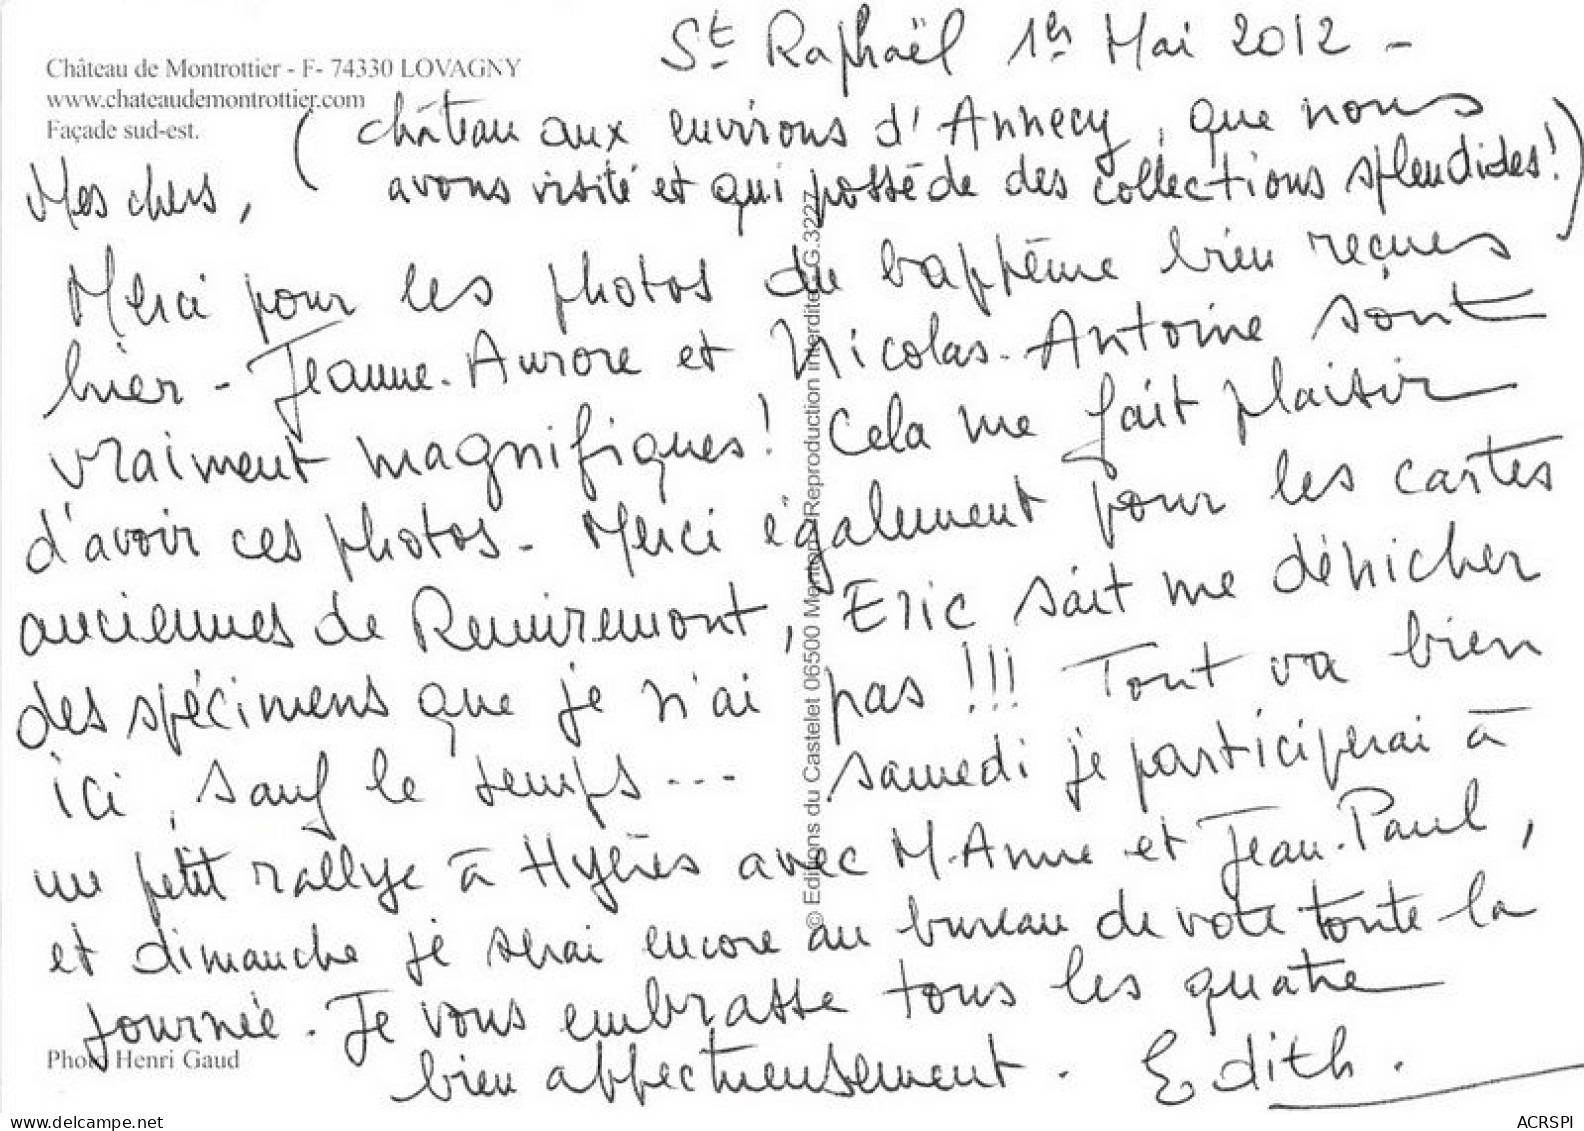 St Raphaël 1er Mai 2012 -
Château de Montrottier - F- 74330 LOVAGNY
www.chateaudemontrottier.com
Façade sud-est.
(château aux environs d'Annecy, que nous
avons visité et qui possède des collections splendides!)
Mes chers,
Merci pour les photos du baptême bien reçues
hier - Jeanne-Aurore et Nicolas-Antoine sont
vraiment magnifiques! Cela me fait plaisir
d'avoir ces photos - Merci également pour les cartes
anciennes de Remiremont, Eric sait me dénicher
des spécimens que je n'ai pas !!! Tout va bien
ici, sauf le temps... Samedi je participerai à
un petit rallye à Hyères avec M.Anne et Jean-Paul,
et dimanche je serai encore au bureau de vote toute la
journée. Je vous embrasse tous les quatre
bien affectueusement. Edith.
Photo Henri Gaud
© Editions du Castelet 06500 Menton - Reproduction interdite - G.3227
delcampe.net
ACRSPI